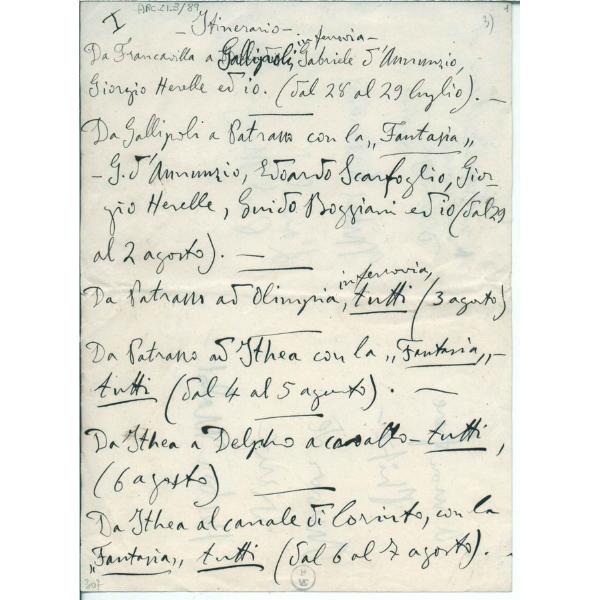 ARC.21.3/89
3)
I
- Itinerario -
in ferrovia -
Da Francavilla a Gallipoli, Gabriele d'Annunzio,
Giorgio Herelle ed io. (dal 28 al 29 luglio). —
Da Gallipoli a Patrasso con la „Fantasia„
- G. d'Annunzio, Edoardo Scarfoglio, Gior-
gio Herelle, Guido Boggiani ed io (dal 29
al 2 agosto). —
in ferrovia,
Da Patrasso ad Olimpia, tutti (3 agosto)
Da Patrasso ad Ithea con la „Fantasia„ -
tutti (dal 4 al 5 agosto). —
Da Ithea a Delpho a cavallo - tutti,
(6 agosto)
Da Ithea al canale di Corinto, con la
„Fantasia„ tutti (dal 6 al 7 agosto). -
307